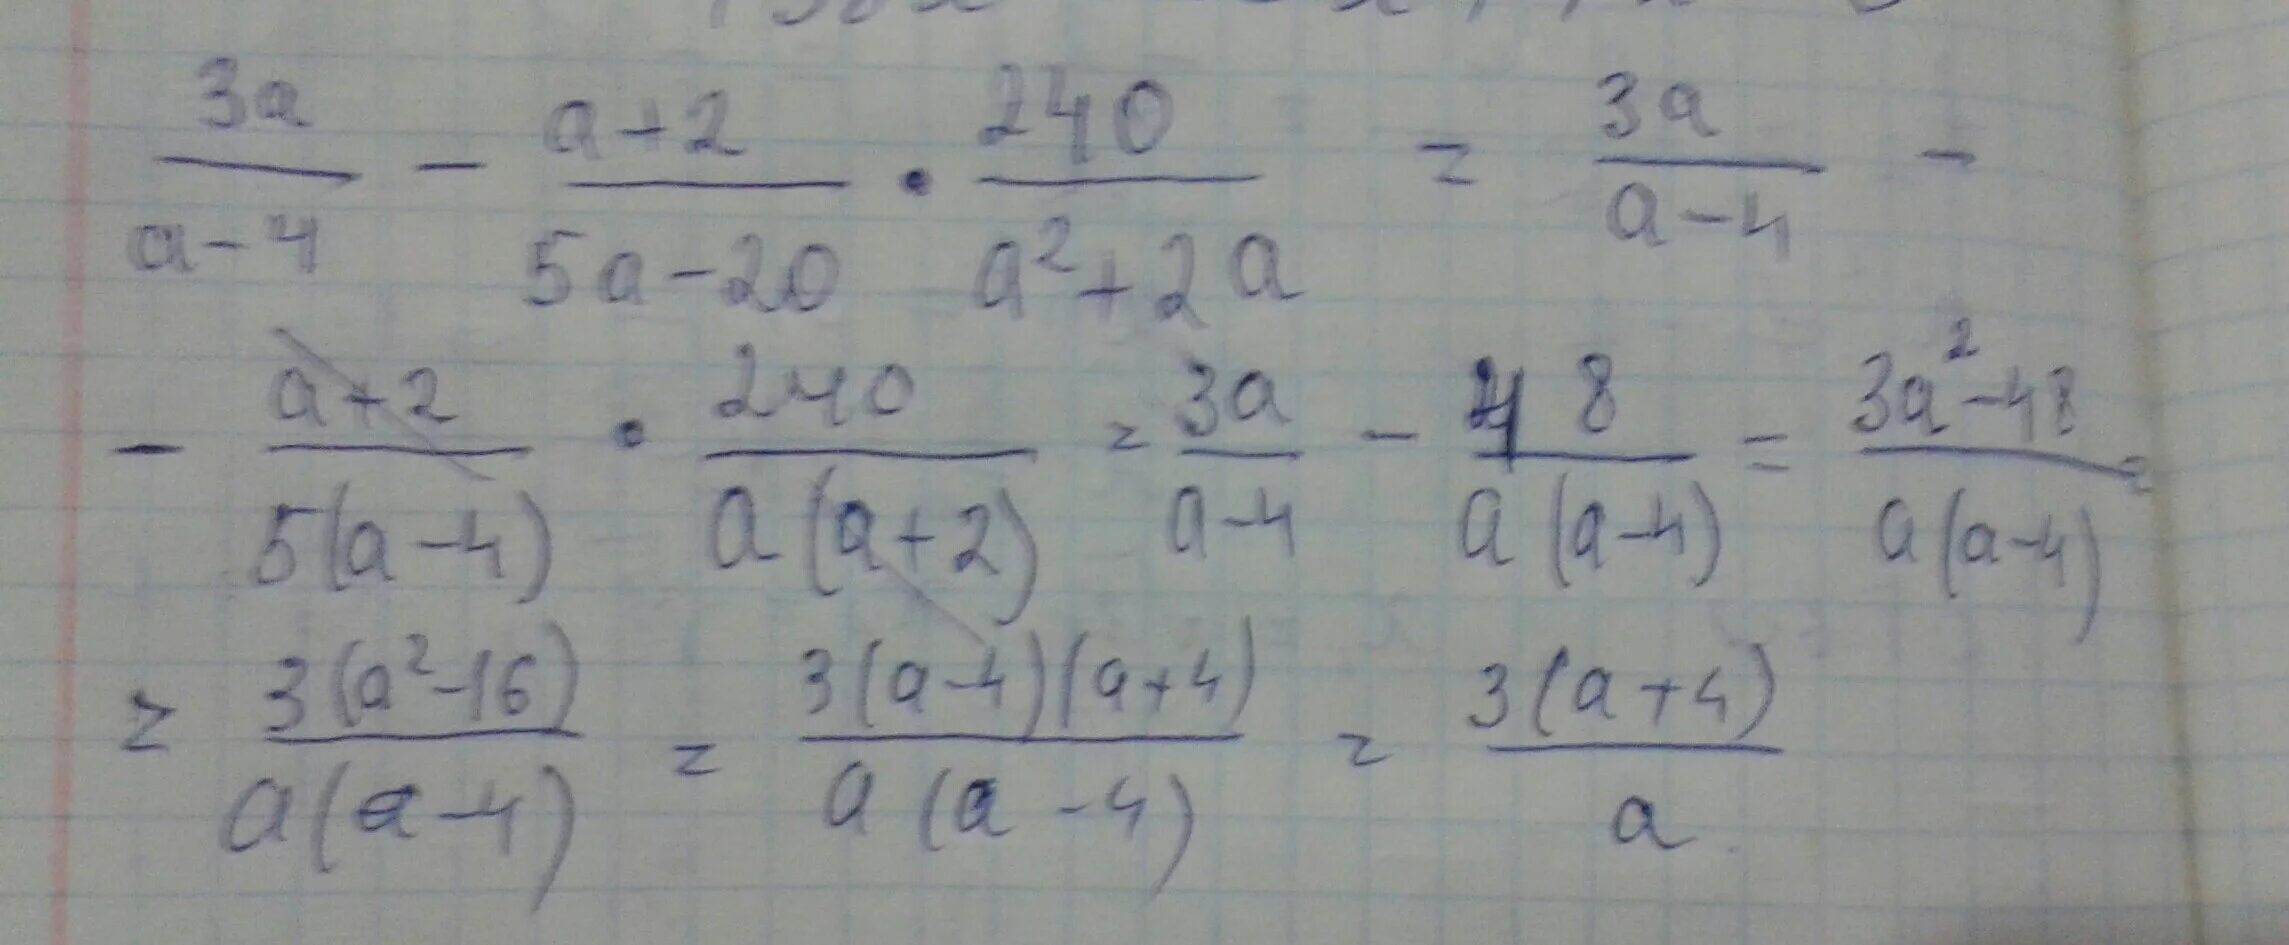 3a/(a-4) - (a+2)/(5a-20) · 240/(a²+2a) = 3a/(a-4) -
- (a+2)/(5(a-4)) · 240/(a(a+2)) = 3a/(a-4) - 48/(a(a-4)) = (3a²-48)/(a(a-4)) =
= 3(a²-16)/(a(a-4)) = 3(a-4)(a+4)/(a(a-4)) = 3(a+4)/a